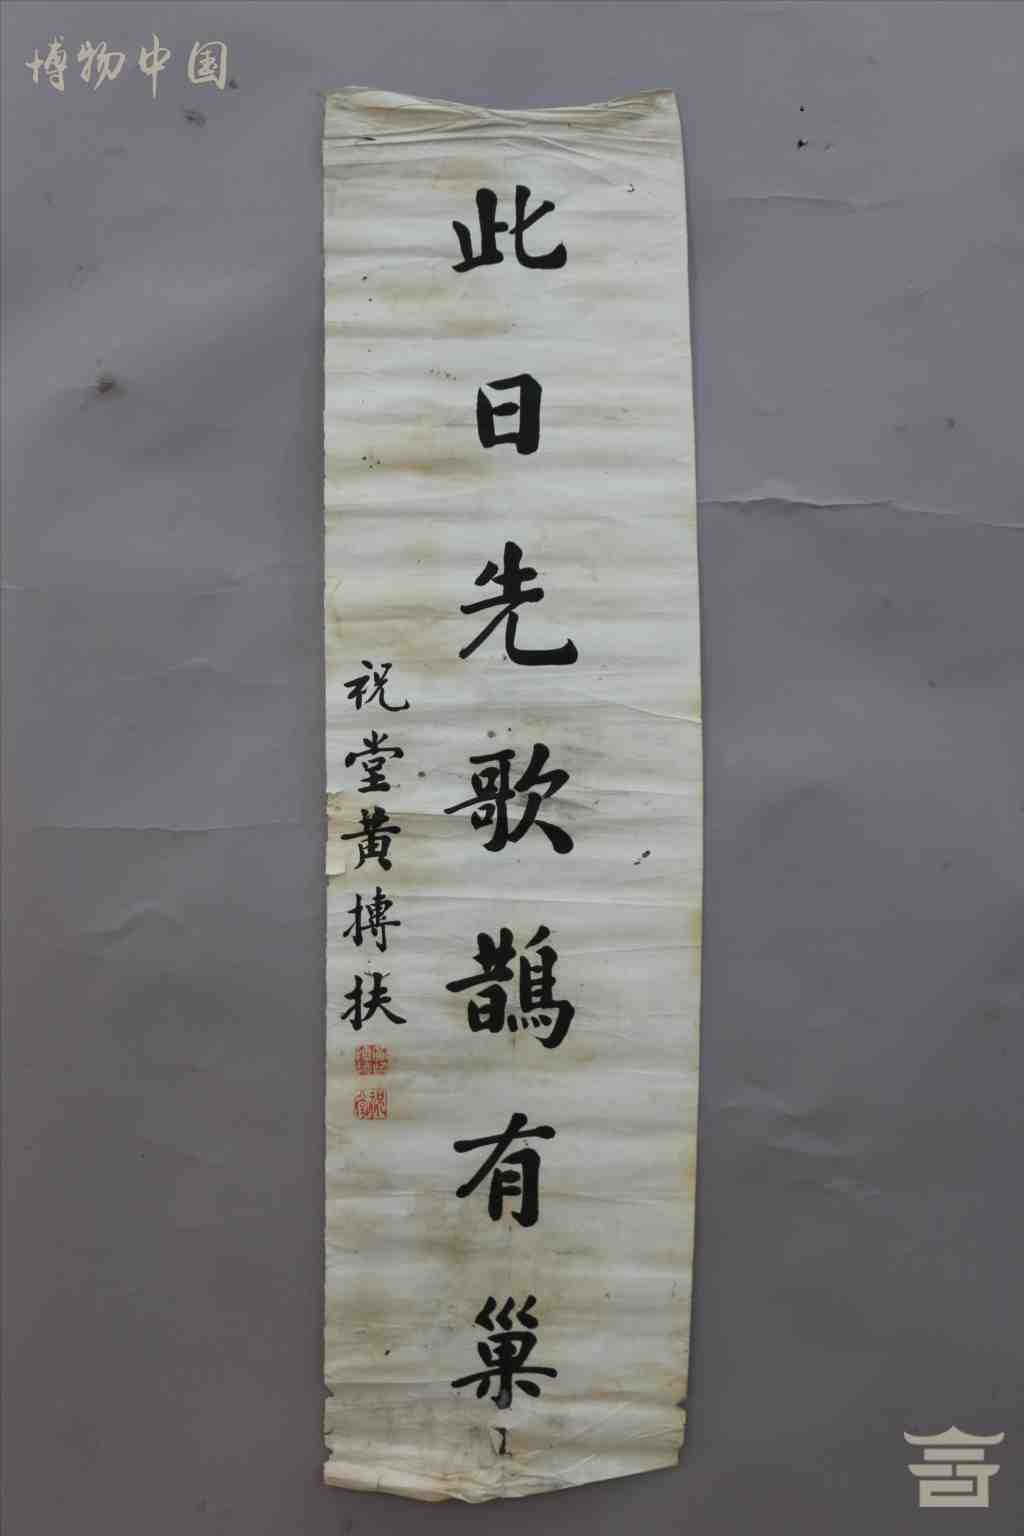 博物中国
此日先歌鵲有巢
祝堂黃摶扶